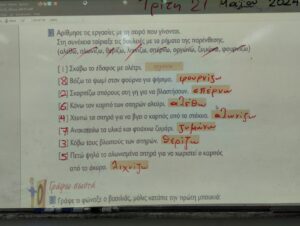 Τρίτη 21 Μαΐου 2024
Αρίθμησε τις εργασίες με τη σειρά που γίνονται.
Στη συνέχεια ταίριαξε τις δουλειές με τα ρήματα της παρένθεσης.
(αλέθω, αλωνίζω, θερίζω, λιχνίζω, σπέρνω, οργώνω, ζυμώνω, φουρνίζω)
(1) Σκάβω το έδαφος με αλέτρι.
8 Βάζω το ψωμί στον φούρνο για ψήσιμο. φουρνίζω
2 Σκορπίζω σπόρους στη γη για να βλαστήσουν. σπέρνω
6 Κάνω τον καρπό των σιτηρών αλεύρι. αλέθω
4 Χτυπώ τα σιτηρά για να βγει ο καρπός από τα στάχυα. αλωνίζω
7 Ανακατεύω τα υλικά και φτιάχνω ζυμάρι. ζυμώνω
3 Κόβω τους βλαστούς των σιτηρών. θερίζω
5 Πετώ ψηλά τα αλωνισμένα σιτηρά για να χωριστεί ο καρπός
από το άχυρο. λιχνίζω
Γράφω σωστά
Γράψε τι φώναξε ο βασιλιάς, μόλις κατάπιε την πρώτη μπουκιά: